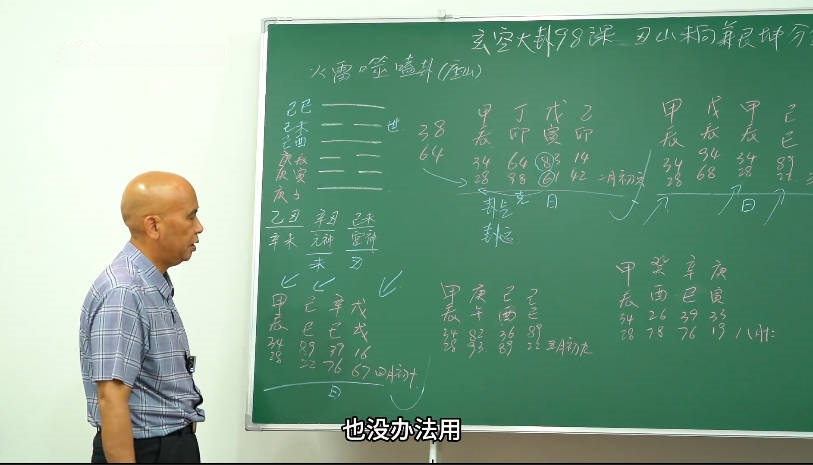 玄空大卦98课 丑山未向兼艮坤分
火雷噬嗑卦(坐山)
己巳
己未 世
己酉
庚辰
庚寅
庚子
38
64
甲 丁 戊 乙
辰 卯 寅 卯
34 64 83 14
28 98 61 42 二月初
卦气 克 日
卦运
甲 戊 甲 己
辰 辰 辰 巳
34 94 34 89
28 68 28 22
日
乙丑 辛丑 己未
辛未 元神 官神
未 丑
甲 己 辛 戊
辰 巳 巳 戌
34 89 39 16
28 22 76 67 四月初十
日
甲 庚 己 己
辰 午 酉 巳
34 82 36 89
28 93 89 22 五月初九
甲 癸 辛 庚
辰 酉 巳 寅
34 26 39 33
28 78 76 19 八月
也没办法用